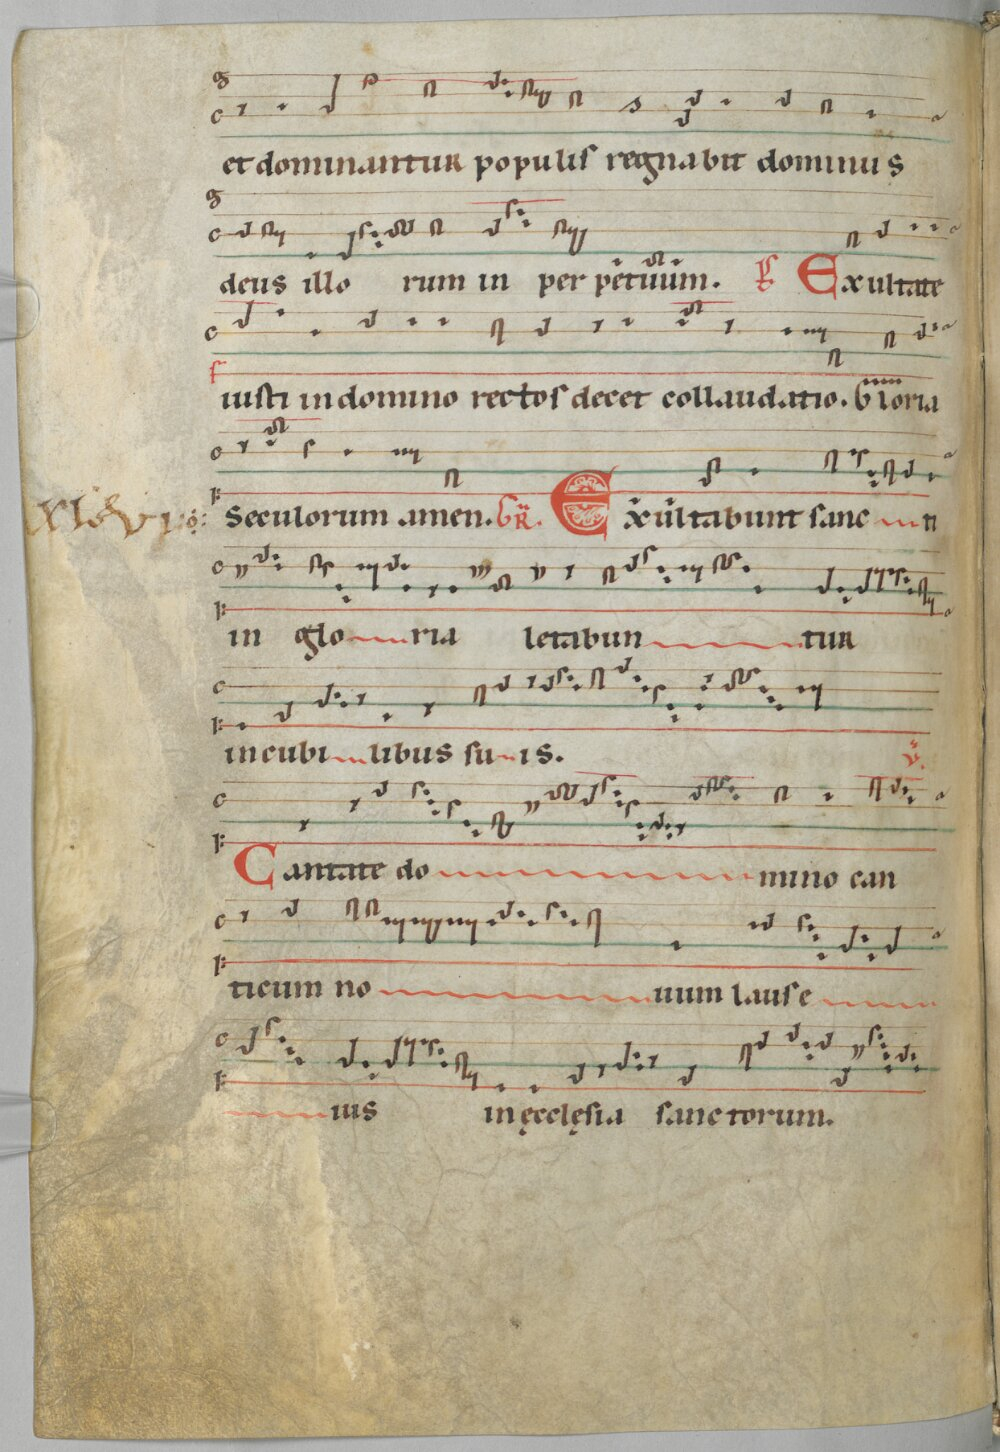 et dominantur populis regnabit dominus
deus illo rum in per petuum. Exultate
iusti in domino rectos decet collaudatio. Gloria
Seculorum amen. GR. Exultabunt sanc ti
in glo ria letabun tur
in cubi libus su is.
V.
Cantate do mino can
ticum no uum laus e
ius in ęcclęsia sanctorum.